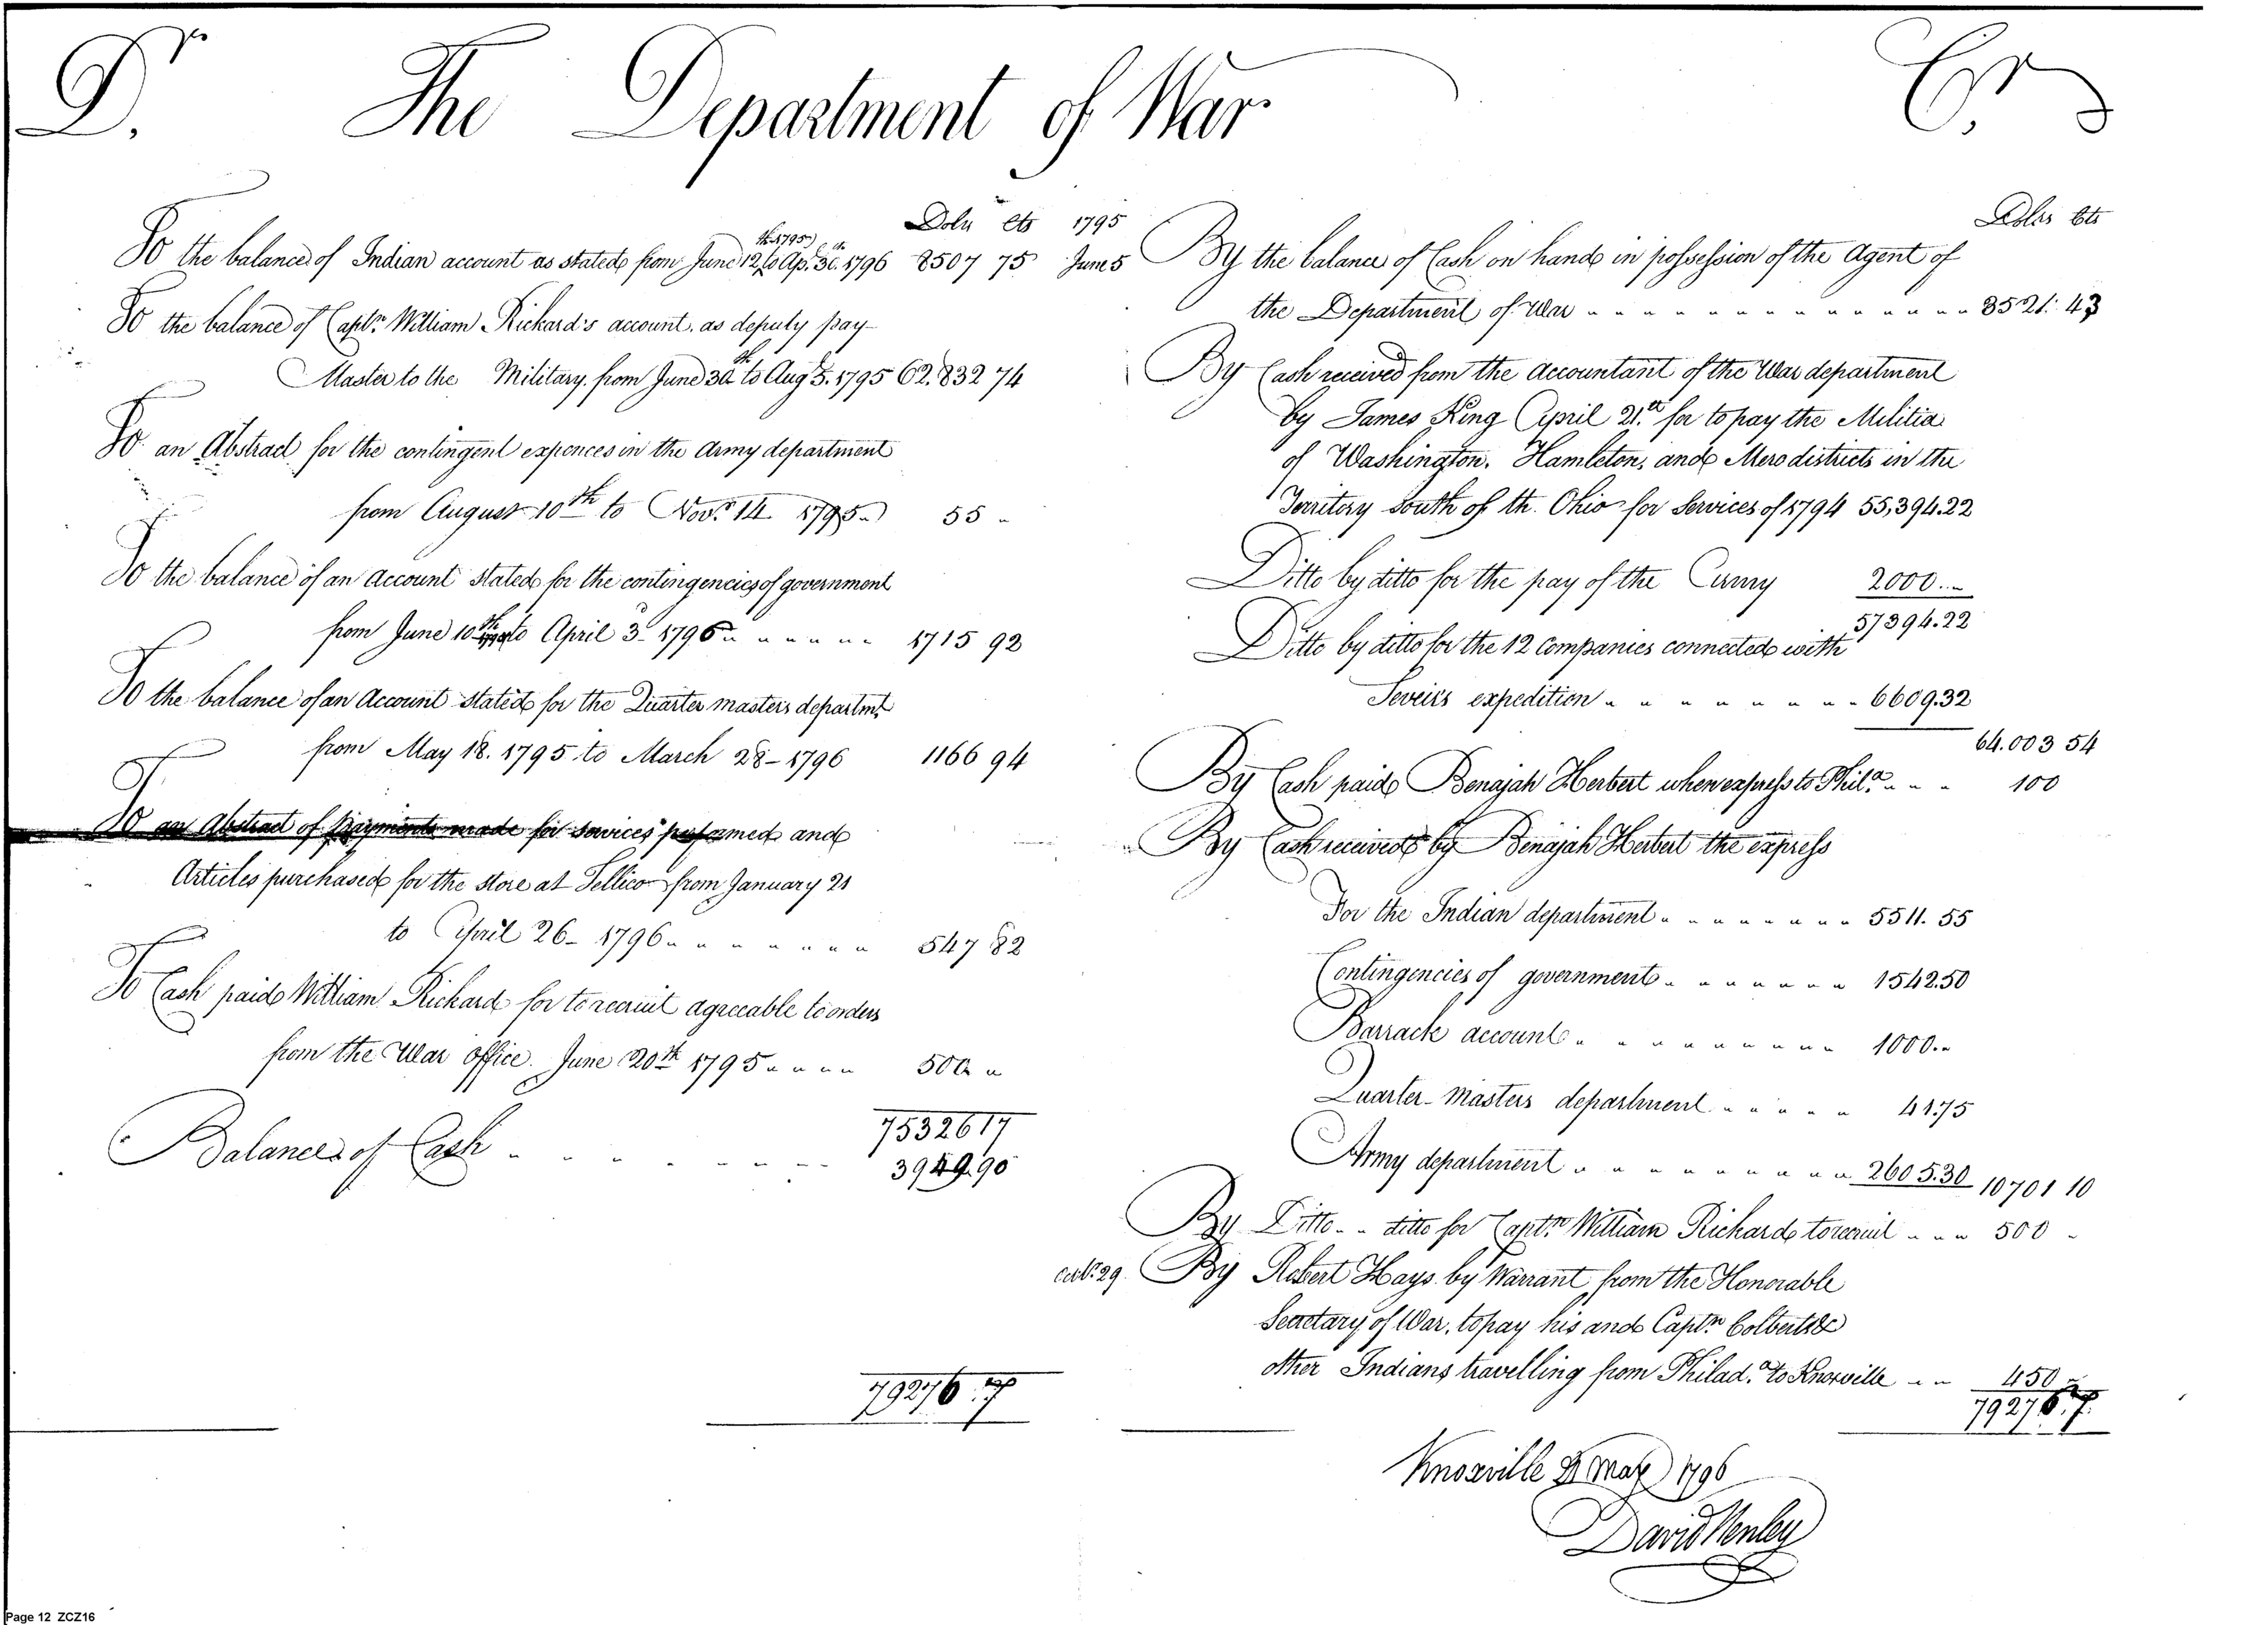 Dr. The Department of War Cr.
Dolrs cts
To the balance of Indian account as stated from June 12th 1795 to Ap. 30th 1796 8507 75
To the balance of Captn. William Rickard's account. as deputy pay
Master to the Military, from June 30th to Aug 5. 1795 62.832 74
To an Abstract for the contingent expences in the Army department
from August 10th to Novr. 14 1795 55 "
To the balance of an Account stated for the contingencies of government
from June 10th to April 3 1796 " " " " " " 1715 92
To the balance of an Account stated for the Quarter masters departmt.
from May 18. 1795 to March 28 - 1796 1166 94
To an Abstract of Payments made for services performed and
Articles purchased for the store at Tellico from January 21
to April 26 - 1796 " " " " " " " 547 82
To Cash paid William Rickard for to recruit agreeable to orders
from the War office. June 20th 1795 " " " " 500 "
7532617
Balance of Cash - - - - - - - 3949.90
79276.7
Dolrs Cts
1795
June 5 By the balance of Cash on hand in possession of the Agent of
the Department of War " " " " " " " " " " " " " 3521: 43
By Cash received from the Accountant of the War department
by James King April 21st for to pay the Militia
of Washington. Hamleton, and Mero districts in the
Territory South of th. Ohio for Services of 1794 55,394.22
Ditto by ditto for the pay of the Army 2000.. -
57394.22
Ditto by ditto for the 12 Companies connected with
Seveirs expedition " " " " " " " " 6609.32
64.003 54
By Cash paid Benajah Herbert when express to Phila. " " " 100
By Cash received by Benajah Herbert the express
For the Indian department " " " " " " " " 5511. 55
Contingencies of government " " " " " " " 1542.50
Barrack account " " " " " " " " " 1000. "
Quarter-Masters department " " " " " 41.75
Army department " " " " " " " " " 2605.30 10701 10
By Ditto - - ditto for Captn. William Rickard to recruit " " " 500 -
29. By Robert Hays by Warrant from the Honorable
Secretary of War, to pay his and Captn. Colberts &
other Indians travelling from Philada. to Knoxville " " 450
79276.7
Knoxville May 1796
David Henley
Page 12 ZCZ16